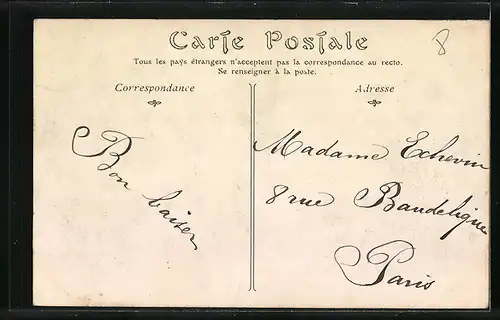 Carte Postale
8
Tous les pays étrangers n'acceptent pas la correspondance au recto.
Se renseigner à la poste.
Correspondance
Adresse
Bon baiser
Madame Echevin
8 rue Baudelique
Paris